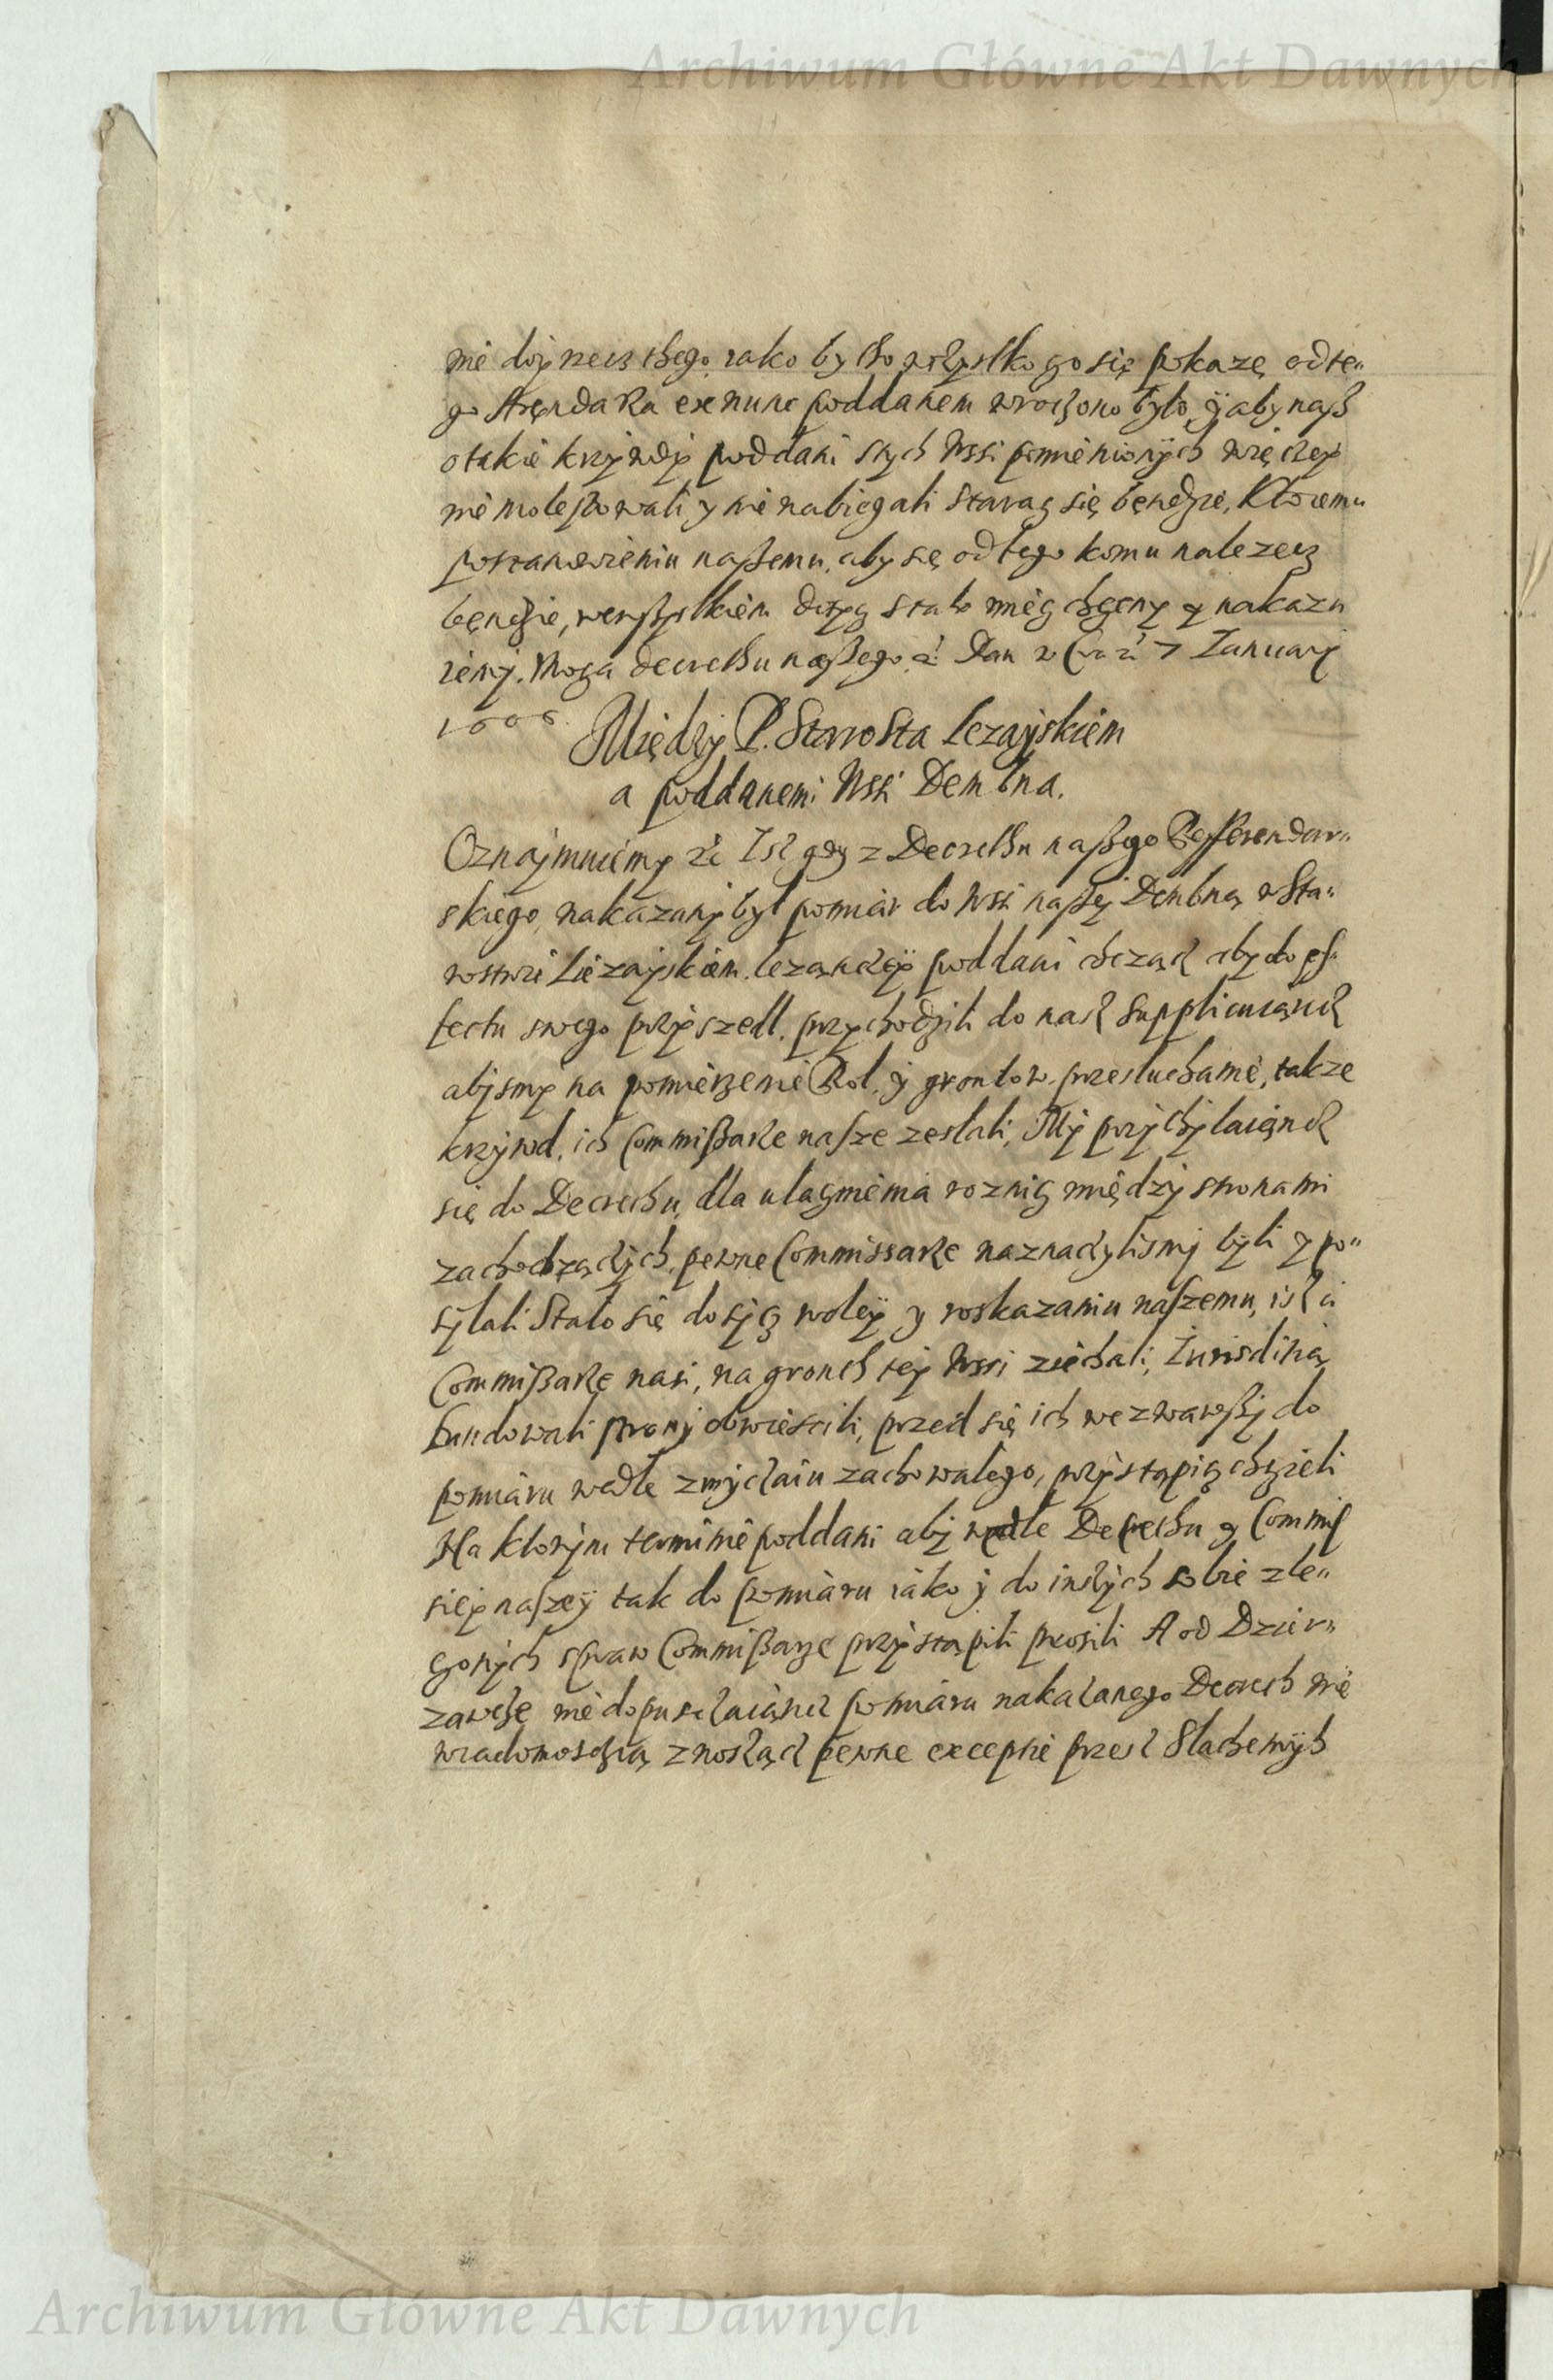 Archiwum Główne Akt Dawnych
nie dojrzecz thego, iako by tho wszystko go się pokazę od te„
go Aręndarza ex nunc poddanem wroczono było, ÿ aby nasz
o takie krzÿwdÿ poddani s tych Wssi pomienionÿch więczeÿ
nie molestowali y nie nabiegali starac się bęndzie, Ktoremu
postanowieniu naszemu, aby się od tego komu nalezecz
będzie, we wszystkiem dosyc stało miec chcemy y nakazu
iemÿ. Moczą decrethu naszego. Dan w 7 Januarÿ
1606.
Międzÿ P. Starosta Lezayskiem
a poddanemi Wsi Dembna.
Oznajmuiemy ze Isz gdy z Decrethu naszego Refferendar„
skiego, nakazanÿ był pomiar do Wsi naszeÿ Dębną w Sta„
rostwie Liezayskiem lezączeÿ poddani chcząc aby do ef„
fectu swego przÿszedł, przychodzili do nasz supplicuiącz
abÿsmÿ na pomierzenie Rol, ÿ grontow, przesłuchanie, takze
krzÿwd, ich Commissarze nasze zesłali, Mÿ przÿchÿlaiącz
się do Decrethu, dla ułacnienia roznic międzÿ stronami
zachodzączÿch, pewne Commissarze naznaczylismÿ byli y po„
sÿłali Stało się dosÿcz woleÿ y roskazaniu naszemu, isz ci
Commissarze nasi, na gronth teÿ Wssi ziechali, Jurisdicią
fundowali stronÿ obwiescili, przed się ich wezwawszÿ do
pomiaru wedle zwÿczaiu zachowałego, przÿstąpicz chczieli
Na ktorÿm terminie poddani abÿ wedle Decrethu y Commis
sieÿ naszeÿ tak do pomiaru iako ÿ do inszÿch sobie zle„
conÿch spraw Commissarze przÿstąpili prosili A od Dzier„
zawce nie dopusczaiącz pomiaru nakazanego Decreth nie
wiadomosczią znosząc pewne exceptie przesz Slachetnÿch
Archiwum Główne Akt Dawnych